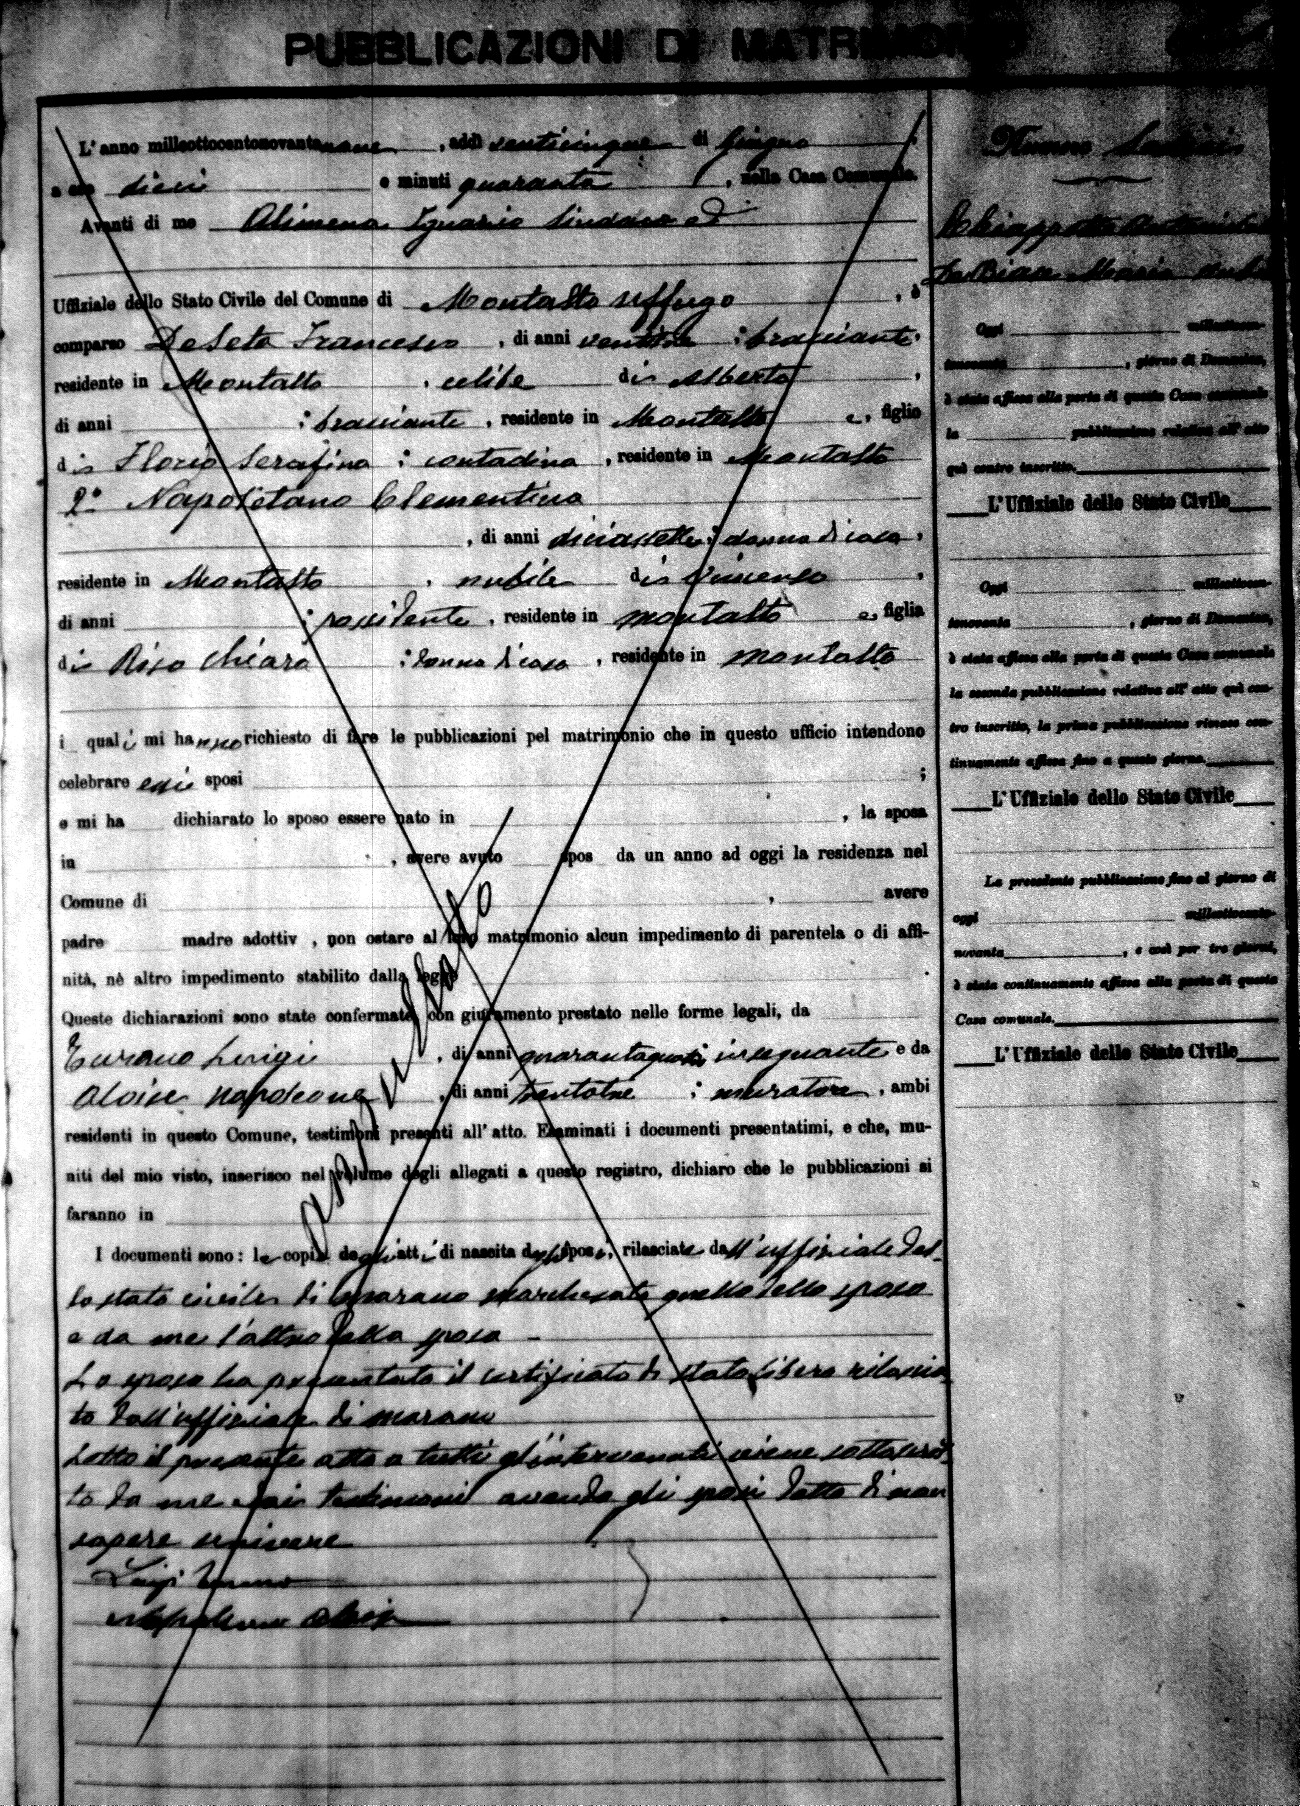 PUBBLICAZIONI DI MATRIMONIO
L'anno milleottocentonovantanove, addì venticinque di Giugno,
a ore dieci e minuti quaranta, nella Casa Comunale.
Avanti di me Alimena Ignazio Sindaco ed
Uffiziale dello Stato Civile del Comune di Montalto Uffugo, è
comparso De Seta Francesco, di anni : bracciante,
residente in Montalto, celibe di Alberto,
di anni : bracciante, residente in Montalto e, figlio
di Florio Serafina : contadina, residente in Montalto
2° Napoletano Clementina
, di anni diciassette : donna di casa,
residente in Montalto, nubile di Vincenzo,
di anni : possidente, residente in Montalto e, figlia
di Riso Chiara : donna di casa, residente in Montalto
i quali mi hanno richiesto di fare le pubblicazioni pel matrimonio che in questo ufficio intendono
celebrare essi sposi ;
e mi ha dichiarato lo sposo essere nato in , la sposa
in , avere avuto spos da un anno ad oggi la residenza nel
Comune di , avere
padre madre adottiv , non ostare al loro matrimonio alcun impedimento di parentela o di affi-
nità, nè altro impedimento stabilito dalla legge
Queste dichiarazioni sono state confermate con giuramento prestato nelle forme legali, da
Turano Luigi, di anni : insegnante e da
Aloise Napoleone, di anni trentatre : muratore, ambi
residenti in questo Comune, testimoni presenti all'atto. Esaminati i documenti presentatimi, e che, mu-
niti del mio visto, inserisco nel volume degli allegati a questo registro, dichiaro che le pubblicazioni si
faranno in
I documenti sono: le copie degli atti di nascita degli sposi, rilasciate dall'uffiziale del-
lo stato civile di Marano Marchesato quello dello sposo
e da me l'altro della sposa -
Lo sposo ha presentato il certificato di stato libero rilascia-
to dall'uffiziale di Marano
Letto il presente atto a tutti gl'intervenuti viene sottoscrit-
to da me e dai testimoni avendo gli sposi detto di non
sapere scrivere
Luigi Turano
Napoleone Aloise
annullato
Numero
Chiappetta
Maria
Oggi millottocen-
tonovanta , giorno di Domenica,
è stata affissa alla porta di questa Casa comunale
la pubblicazione relativa all'atto
quì contro inscritto.
L'Uffiziale dello Stato Civile
Oggi millottocen-
tonovanta , giorno di Domenica,
è stata affissa alla porta di questa Casa comunale
la seconda pubblicazione relativa all'atto quì con-
tro inscritto, la prima pubblicazione rimase con-
tinuamente affissa fino a questo giorno.
L'Uffiziale dello Stato Civile
La precedente pubblicazione fino al giorno di
oggi millottocento-
novanta , e così per tre giorni,
è stata continuamente affissa alla porta di questa
Casa comunale.
L'Uffiziale dello Stato Civile